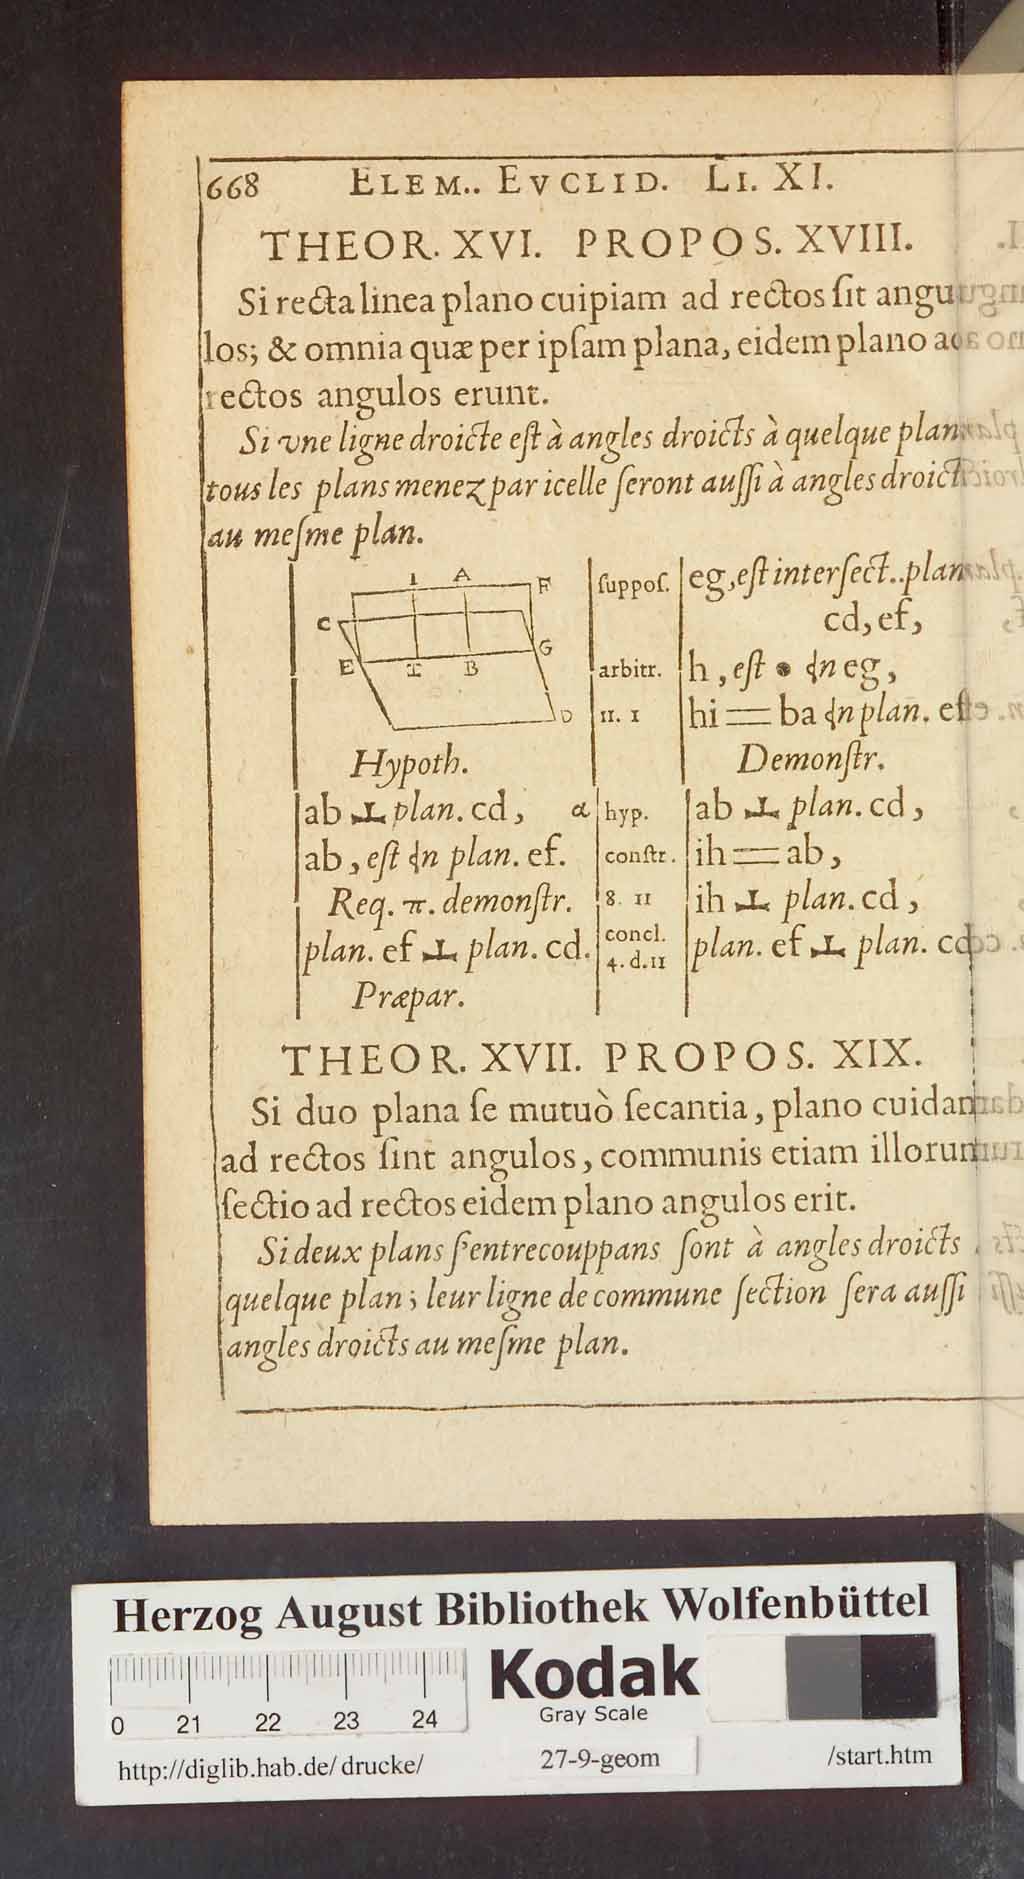 668 ELEM.. EVCLID. LI. XI.
THEOR. XVI. PROPOS. XVIII.
Si recta linea plano cuipiam ad rectos ſit angu
los; & omnia quæ per ipſam plana, eidem plano ad
rectos angulos erunt.
Si vne ligne droicte eſt à angles droicts à quelque plan
tous les plans menez par icelle ſeront auſſi à angles droict
au meſme plan.
I A F
C
E I B G
D
Hypoth.
ab ⊥ plan. cd, α
ab, eſt ⊰n plan. ef.
Req. π. demonſtr.
plan. ef ⊥ plan. cd.
Præpar.
ſuppoſ. eg, eſt interſect.. plan
cd, ef,
arbitr. h, eſt • ⊰n eg,
11. 1 hi == ba ⊰n plan. ef
Demonſtr.
hyp. ab ⊥ plan. cd,
conſtr. ih == ab,
8. 11 ih ⊥ plan. cd,
concl.
4. d. 11 plan. ef ⊥ plan. cd
THEOR. XVII. PROPOS. XIX.
Si duo plana ſe mutuò ſecantia, plano cuidam
ad rectos ſint angulos, communis etiam illorum
ſectio ad rectos eidem plano angulos erit.
Si deux plans ſ'entrecouppans ſont à angles droicts
quelque plan; leur ligne de commune ſection ſera auſſi
angles droicts au meſme plan.
Herzog August Bibliothek Wolfenbüttel
Kodak
Gray Scale
0 21 22 23 24
http://diglib.hab.de/drucke/ 27-9-geom /start.htm